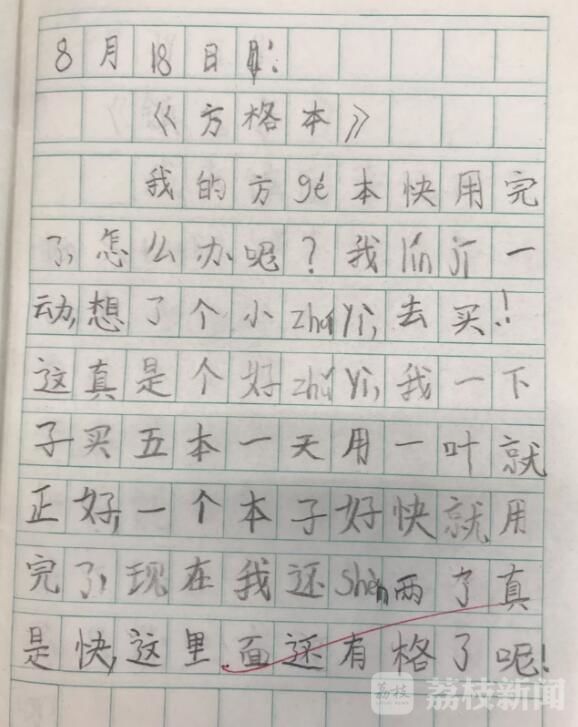 8月18日
《方格本》
我的方gé本快用完
了,怎么办呢?我lín jī一
动,想了个小zhú yì,去买!
这真是个好zhú yì,我一下
子买五本一天用一叶就
正好,一个本子好快就用
完了,现在我还shèn两了真
是快,这里面还有格了呢!
荔枝 荔枝新闻